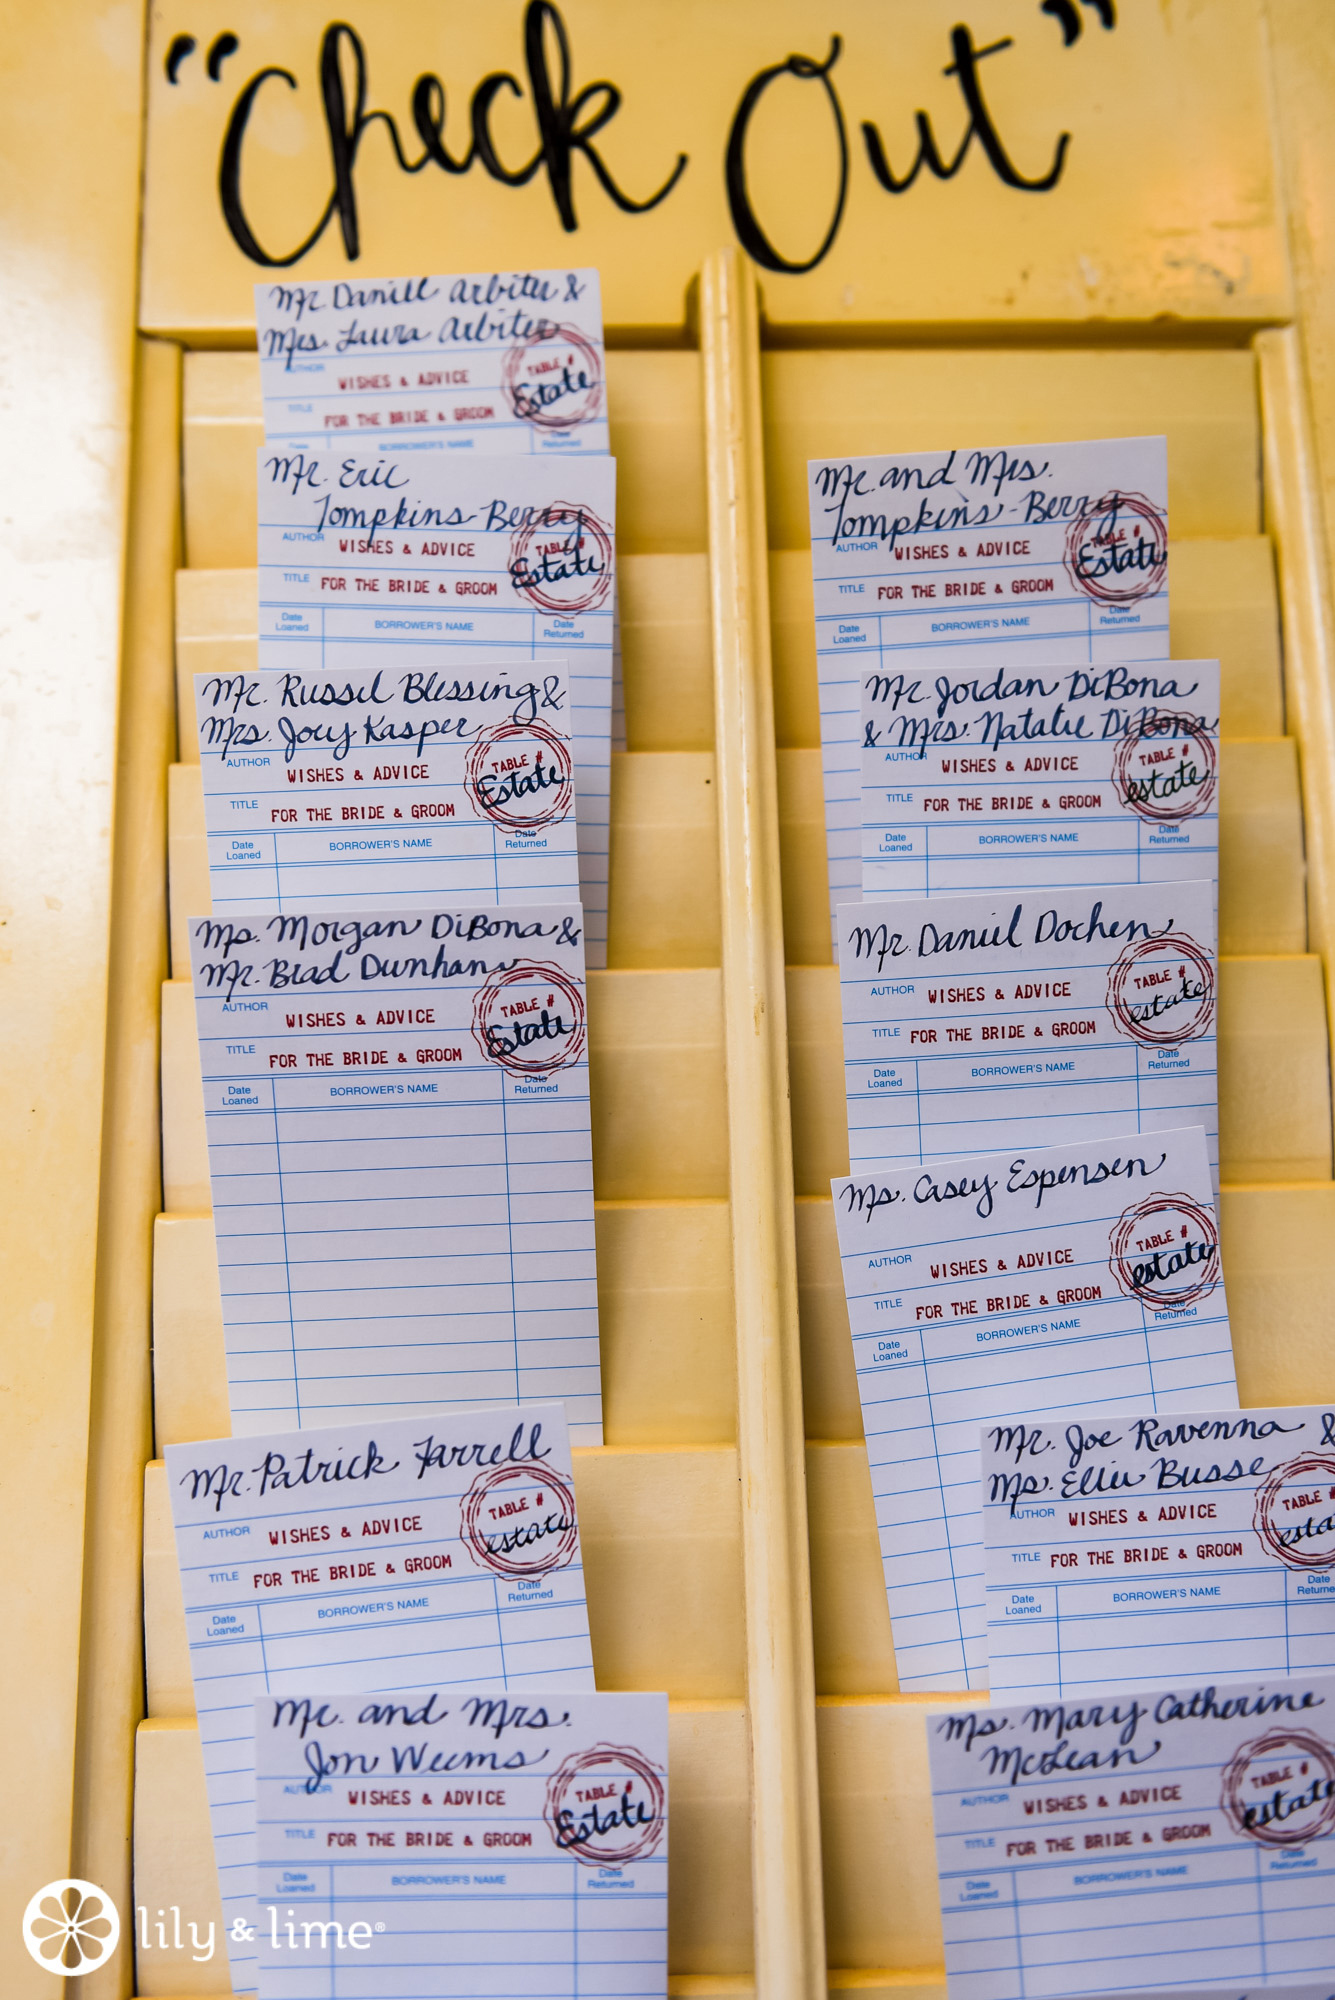 "Check Out"
Mr. Daniel Arbiter &
Mrs. Laura Arbiter
AUTHOR WISHES & ADVICE
TITLE FOR THE BRIDE & GROOM
TABLE #
Estate
BORROWER'S NAME
Date
Returned
Mr. Eric
Tompkins-Berry
AUTHOR WISHES & ADVICE
TITLE FOR THE BRIDE & GROOM
TABLE #
Estate
Date
Loaned
BORROWER'S NAME
Date
Returned
Mr. Russel Blessing &
Mrs. Joey Kasper
AUTHOR WISHES & ADVICE
TITLE FOR THE BRIDE & GROOM
TABLE #
Estate
Date
Loaned
BORROWER'S NAME
Date
Returned
Ms. Morgan DiBona &
Mr. Brad Dunham
AUTHOR WISHES & ADVICE
TITLE FOR THE BRIDE & GROOM
TABLE #
Estate
Date
Loaned
BORROWER'S NAME
Date
Returned
Mr. Patrick Farrell
AUTHOR WISHES & ADVICE
TITLE FOR THE BRIDE & GROOM
TABLE #
estate
Date
Loaned
BORROWER'S NAME
Date
Returned
Mr. and Mrs.
Jon Weems
AUTHOR WISHES & ADVICE
TITLE FOR THE BRIDE & GROOM
TABLE #
Estate
Date
Loaned
BORROWER'S NAME
Date
Returned
Mr. and Mrs.
Tompkins-Berry
AUTHOR WISHES & ADVICE
TITLE FOR THE BRIDE & GROOM
TABLE #
Estate
Date
Loaned
BORROWER'S NAME
Date
Returned
Mr. Jordan DiBona
& Mrs. Natalie DiBona
AUTHOR WISHES & ADVICE
TITLE FOR THE BRIDE & GROOM
TABLE #
estate
Date
Loaned
BORROWER'S NAME
Date
Returned
Mr. Daniel Dochen
AUTHOR WISHES & ADVICE
TITLE FOR THE BRIDE & GROOM
TABLE #
estate
Date
Loaned
BORROWER'S NAME
Date
Returned
Ms. Casey Espensen
AUTHOR WISHES & ADVICE
TITLE FOR THE BRIDE & GROOM
TABLE #
estate
Date
Loaned
BORROWER'S NAME
Date
Returned
Mr. Joe Ravenna &
Ms. Ellie Busse
AUTHOR WISHES & ADVICE
TITLE FOR THE BRIDE & GROOM
TABLE #
esta
Date
Loaned
BORROWER'S NAME
Date
Returne
Ms. Mary Catherine
McLean
AUTHOR WISHES & ADVICE
TITLE FOR THE BRIDE & GROOM
TABLE #
estate
Date
Loaned
BORROWER'S NAME
Date
Returned
lily & lime®